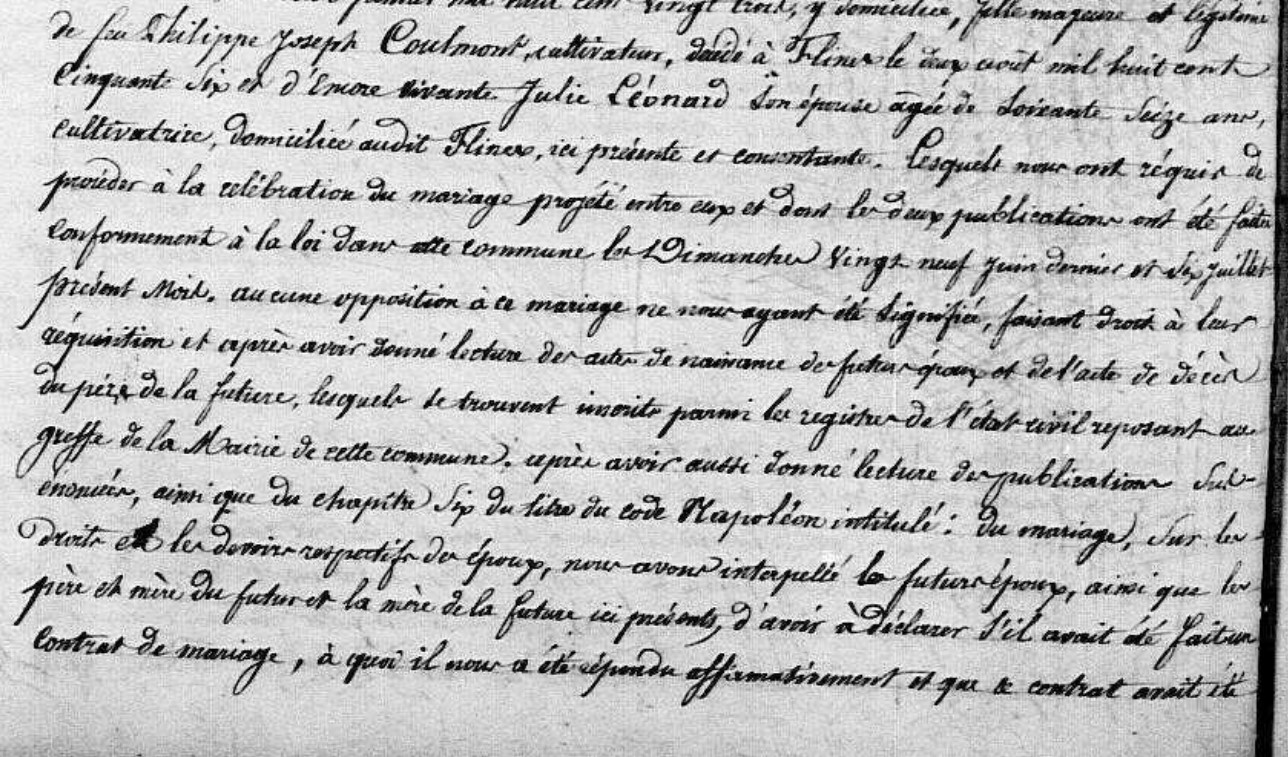 premier mai huit cent vingt trois, y domiciliée, fille majeure et légitime
de feu Philippe Joseph Coulmont, cultivateur, décédé à Flines le deux août mil huit cent
Cinquante Six et d'Encore vivante Julie Léonard Son épouse agée de Soixante Seize ans,
cultivatrice, domiciliée audit Flines, ici présente et consentante. Lesquels nous ont réquis de
procéder à la celébration du mariage projété entre eux et dont les deux publications ont été faites
Conformement à la loi dans cette commune les Dimanches Vingt neuf Juin dernier et Six Juillet
présent Mois. aucune opposition à ce mariage ne nous ayant été Signifiée, faisant droit à leur
réquisition et après avoir donné lecture des actes de naissance des futurs époux et de l'acte de décès
du père de la future, lesquels se trouvent inscrits parmi les registres de l'état civil reposant au
greffe de la Mairie de cette commune. après avoir aussi donné lecture des publications Sus-
énoncées, ainsi que du chapitre Six du titre du code Napoléon intitulé : du mariage, Sur les
Droits et les devoirs respectifs des époux, nous avons interpellé les futurs époux, ainsi que les
père et mère du futur et la mère de la future ici présents, d'avoir à déclarer S'il avait été fait un
Contrat de mariage, à quoi il nous a été répondu affirmativement et que ce contrat avait été